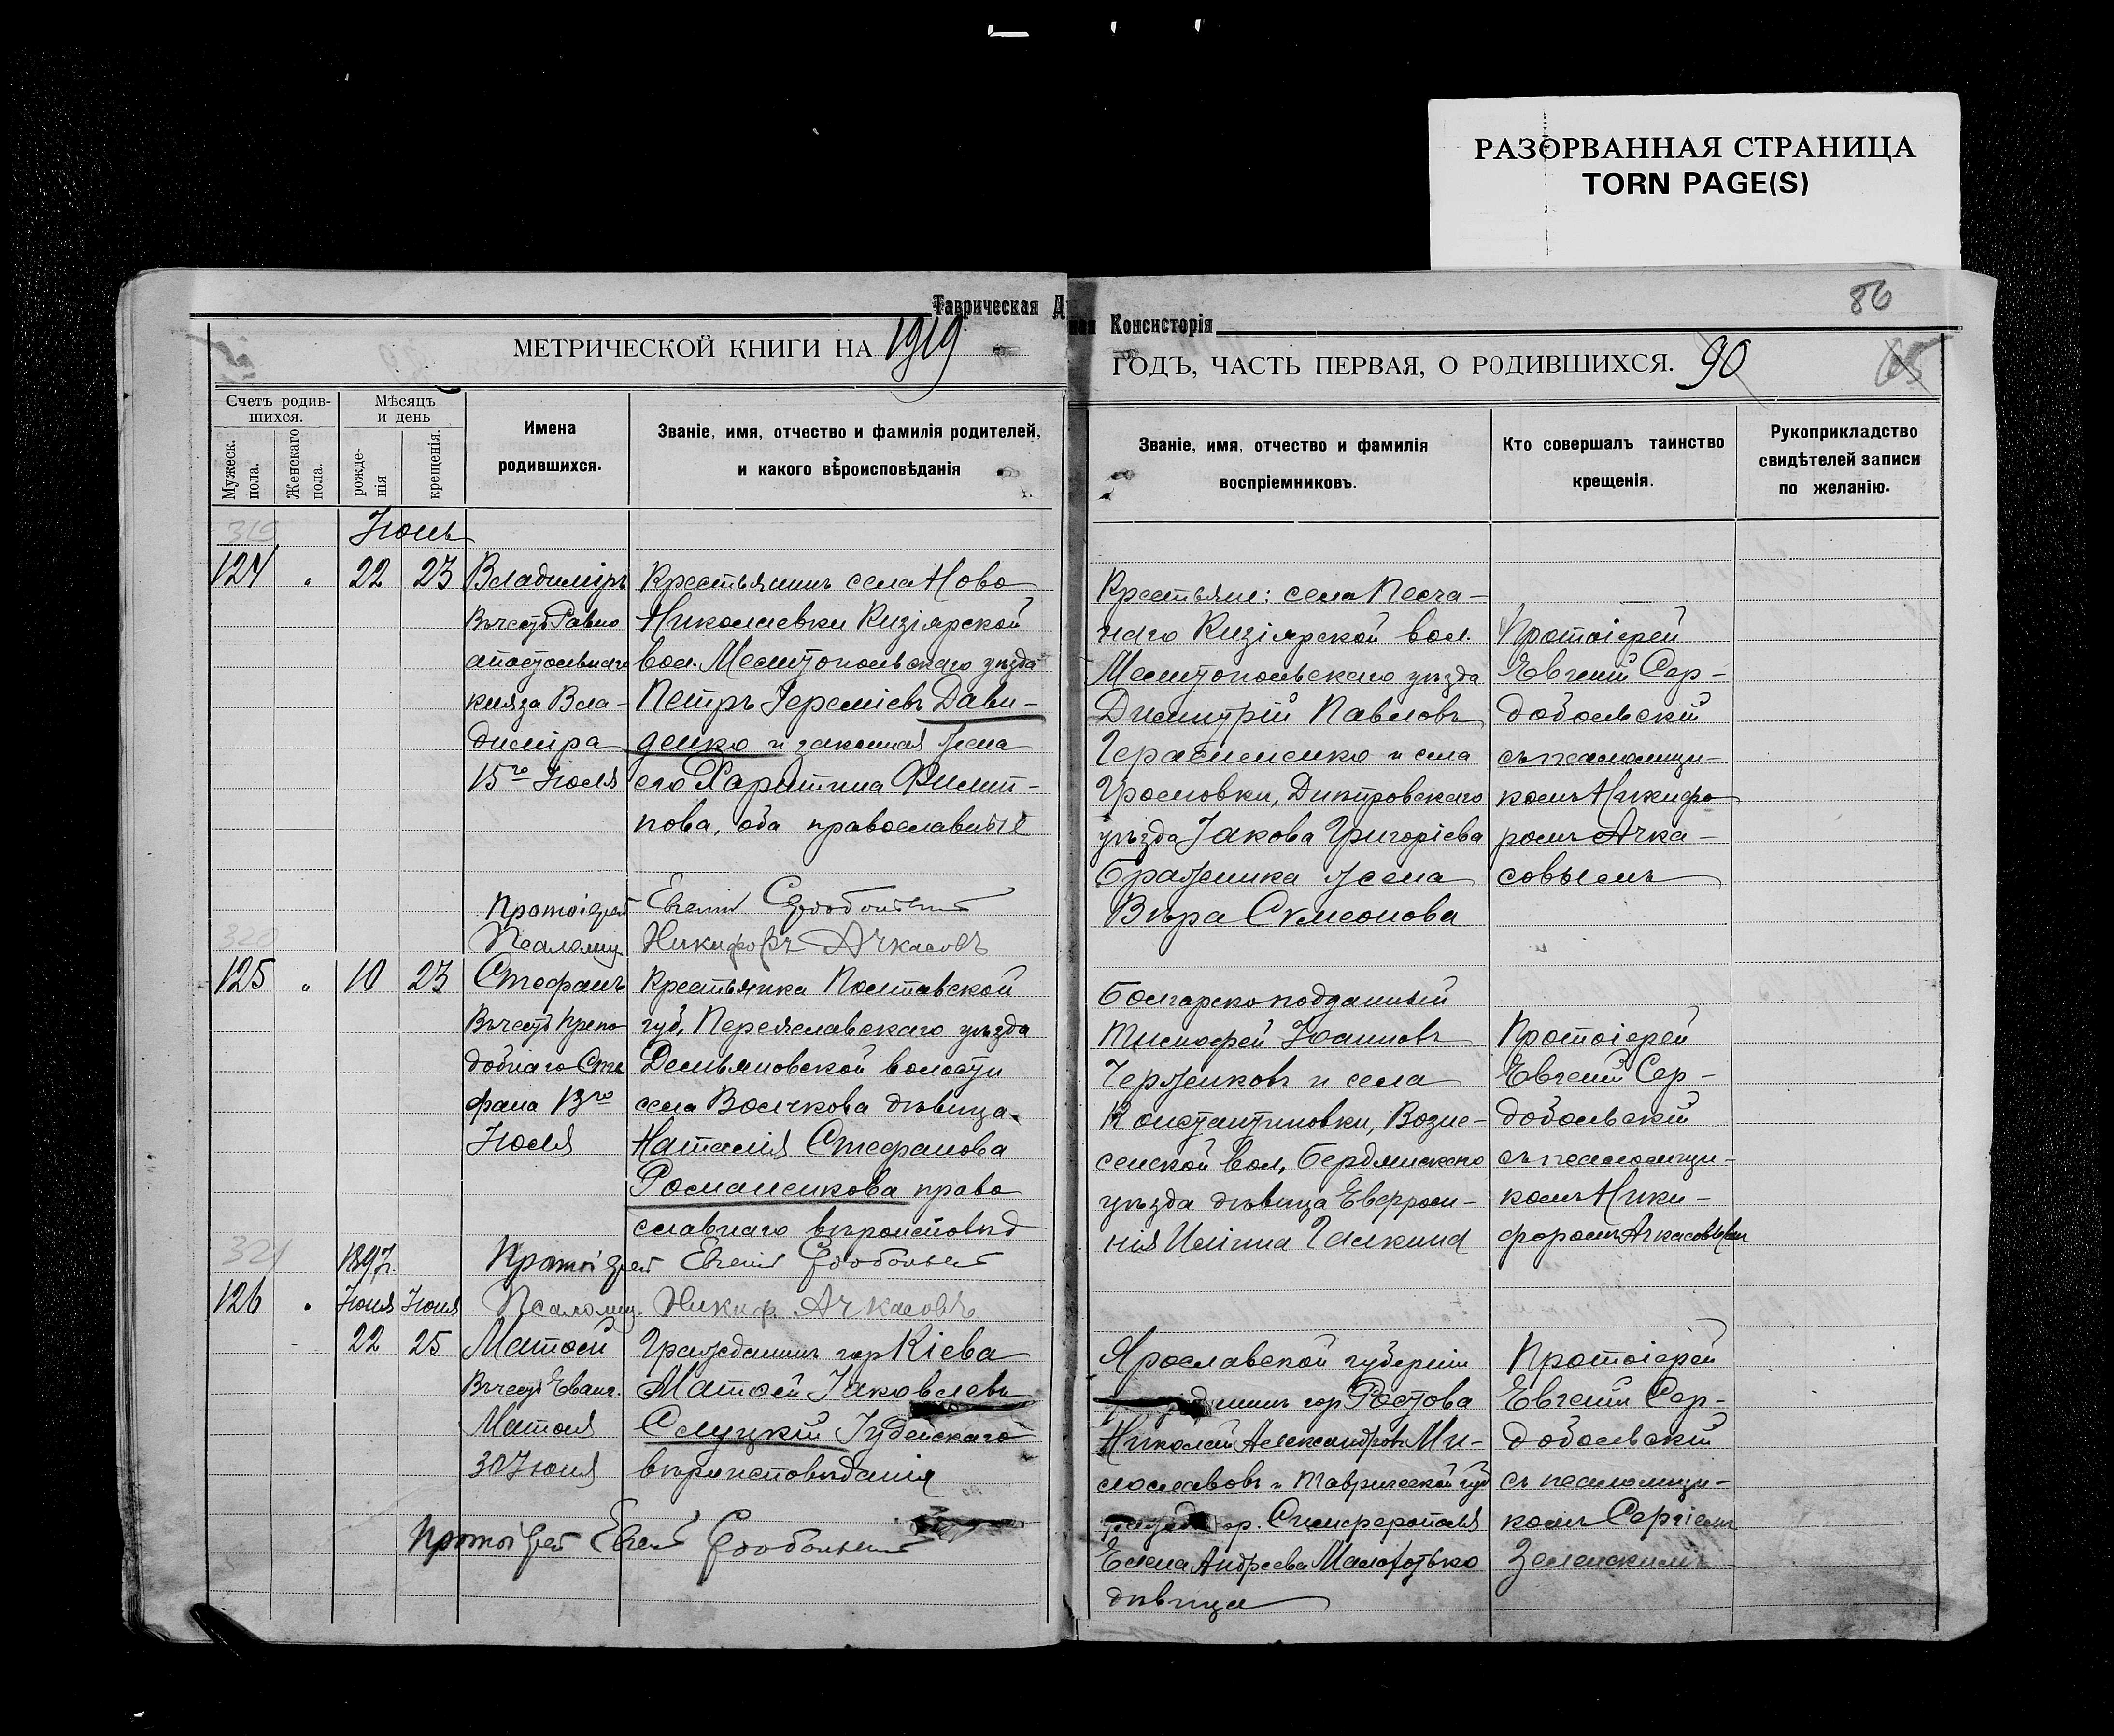 РАЗОРВАННАЯ СТРАНИЦА
TORN PAGE(S)
86
Таврическая Ду
ная Консисторія
МЕТРИЧЕСКОЙ КНИГИ НА 1919
ГОДЪ, ЧАСТЬ ПЕРВАЯ, О РОДИВШИХСЯ. 90
65
Счетъ родив-
шихся.
Мужеск.
пола.
Женскаго
пола.
Мѣсяцъ
и день
рожде-
нія
крещенія.
Имена
родившихся.
Званіе, имя, отчество и фамилія родителей,
и какого вѣроисповѣданія
Званіе, имя, отчество и фамилія
воспріемниковъ.
Кто совершалъ таинство
крещенія.
Рукоприкладство
свидѣтелей записи
по желанію.
319
Іюнь
124 " 22 23
Владиміръ
Въ честь Равно
апостольнаго
князя Вла-
диміра
15го Іюля
Крестьянинъ села Ново
Николаевки Кизіярской
вол. Мелитопольскаго уѣзда
Петръ Іереміевъ Дави-
денко и законная жена
его Харитина Филип-
пова, оба православные
Крестьяне: села Песча-
наго Кизіярской вол.
Мелитопольскаго уѣзда
Димитрій Павловъ
Герасименко и села
Уѣзда Іакова Григоріева
Бражника жена
Вѣра Сумеонова
Протоіерей
Евгеній Сер-
добольскій
съ псаломщи-
комъ Никифо
ромъ Ачка-
совымъ
Протоіерей Евгеній Сердобольскій
Псаломщ Никифоръ Ачкасовъ
320
125 " 10 23
Стефанъ
Въ честь Препо
добнаго Сте
фана 13го
Іюля
Крестьянка Полтавской
губ. Переяславскаго уѣзда
Демьяновской волости
села Волчкова дѣвица
Наталія Стефанова
Романенкова право
славнаго вѣроисповѣд
Болгарскоподданный
Тимофей Іоанновъ
Черженковъ и села
Константиновки, Возне-
сенской вол, Бердянскаго
уѣзда дѣвица Евфроси-
нія Ильина Галкина
Протоіерей
Евгеній Сер-
добольскій
съ псаломщи-
комъ Ники-
форомъ Ачкасовымъ
Протоіерей Евгеній Сердобольскій
Псаломщ. Никиф. Ачкасовъ
321
1897г.
126 " Іюня Іюня
22 25
Матѳей
Въ честь Еванг.
Матѳея
30 Іюня
Гражданинъ гор Кіева
Матѳей Іаковлевъ
Слуцкій Іудейскаго
вѣроисповѣданія
Ярославской губерніи
гор Ростова
Николай Александровъ Ми-
лославовъ и Таврической губ
гор. Симферополя
Елена Андреева
дѣвица
Протоіерей
Евгеній Сер-
добольскій
съ псаломщи-
комъ Сергіемъ
Зеленскимъ
Протоіерей Евгеній Сердобольскій